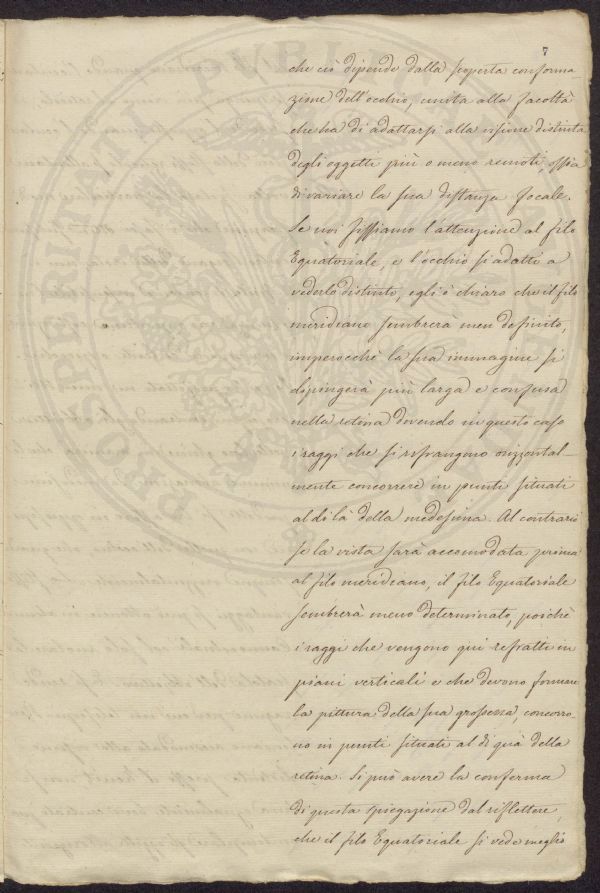 7
che ciò dipende dalla scoperta conforma-
zione dell'occhio, unita alla facoltà
che ha di adattarsi alla visione distinta
degli oggetti più o meno remoti, ossia
di variare la sua distanza focale.
Se noi fissiamo l'attenzione al filo
Equatoriale, e l'occhio si adatti a
vederlo distinto, egli è chiaro che il filo
meridiano sembrerà men definito,
imperocchè la sua immagine si
dipingerà più larga e confusa
nella retina dovendo in questo caso
i raggi che si rifrangono orizzontal-
mente concorrere in punti situati
al di là della medesima. Al contrario
se la vista sarà accomodata prima
al filo meridiano, il filo Equatoriale
sembrerà meno determinato, poichè
i raggi che vengono qui refratti in
piani verticali e che devono formare
la pittura della sua grossezza, concorro-
no in punti situati al di quà della
retina. Si può avere la conferma
di questa spiegazione dal riflettere,
che il filo Equatoriale si vede meglio
PROSPERITATI PUBLICAE